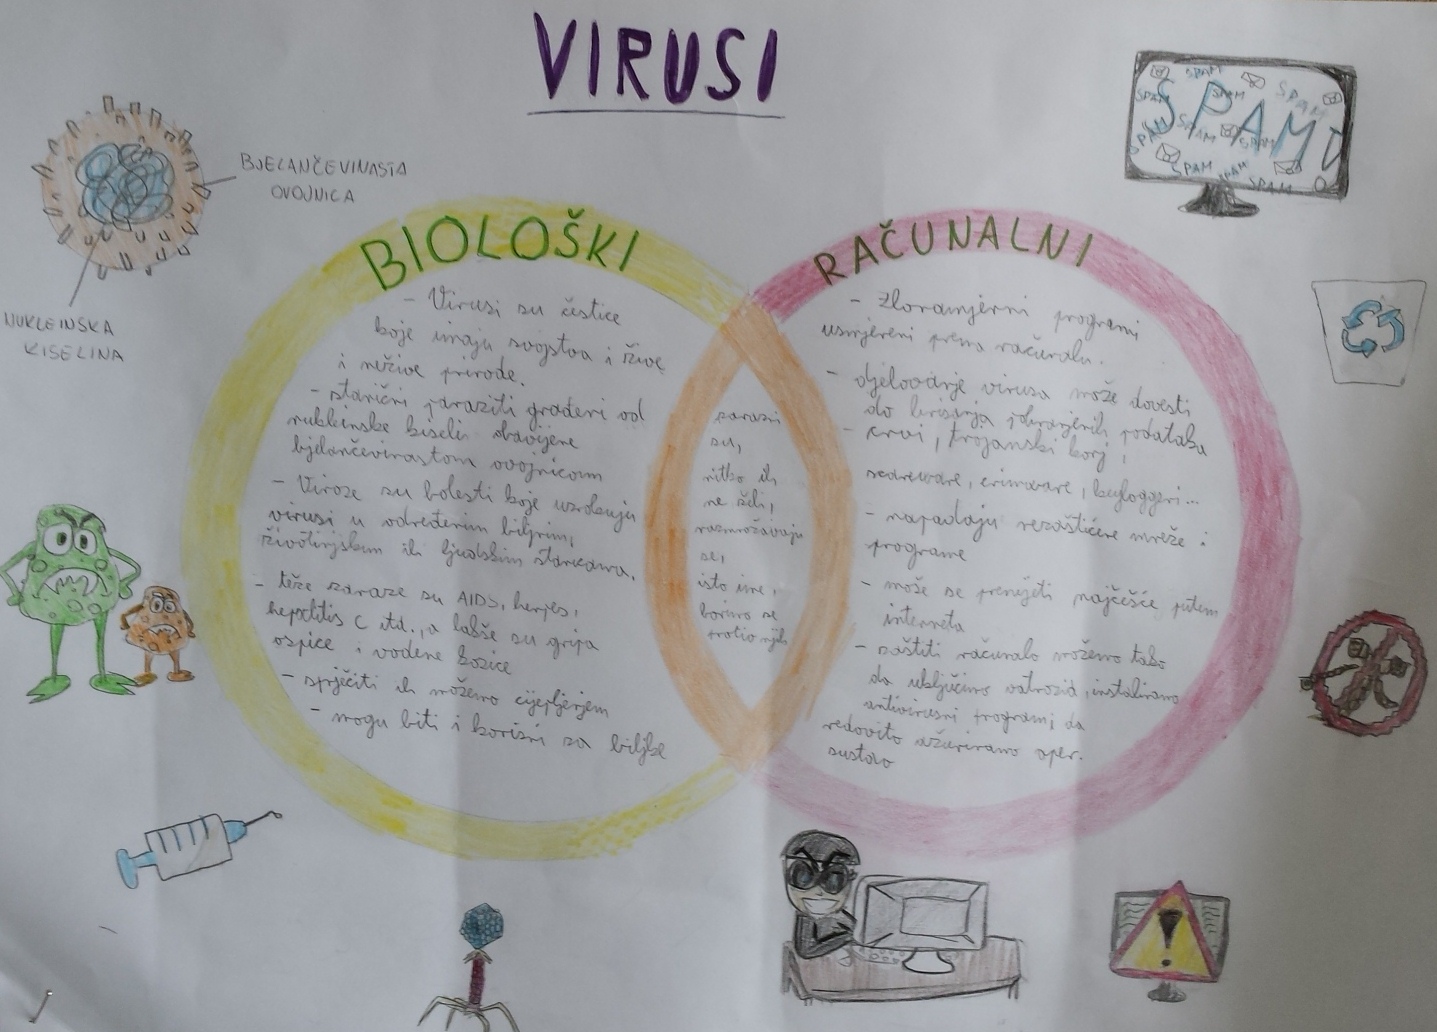 VIRUSI
BJELANČEVINASTA
OVOJNICA
NUKLEINSKA
KISELINA
SPAM
SPAM
SPAM
SPAM
SPAM
SPAM
SPAM
SPAM
SPAM
SPAM
SPAM
BIOLOŠKI
- Virusi su čestice
koje imaju svojstva i žive
i nežive prirode.
- stanični paraziti građeni od
nukleinske kiseline obavijene
bjelančevinastom ovojnicom
- Viroze su bolesti koje uzrokuju
virusi u određenim biljnim,
životinjskim ili ljudskim stanicama.
- teže zaraze su AIDS, herpes,
hepatitis C itd., a lakše su gripa
ospice i vodene kozice
- spriječiti ih možemo cijepljenjem
- mogu biti i korisni za biljke
zarazni
su,
nitko ih
ne želi,
razmnožavaju
se,
isto ime,
borimo se
protiv njih
RAČUNALNI
- zlonamjerni programi
usmjereni prema računalu.
- djelovanje virusa može dovesti
do brisanja pohranjenih podataka
- crvi, trojanski konj,
scareware, crimware, keyloggeri...
- napadaju nezaštićene mreže i
programe
- može se prenijeti najčešće putem
interneta
- zaštiti računalo možemo tako
da uključimo vatrozid, instaliramo
antivirusni program i da
redovito ažuriramo oper.
sustav